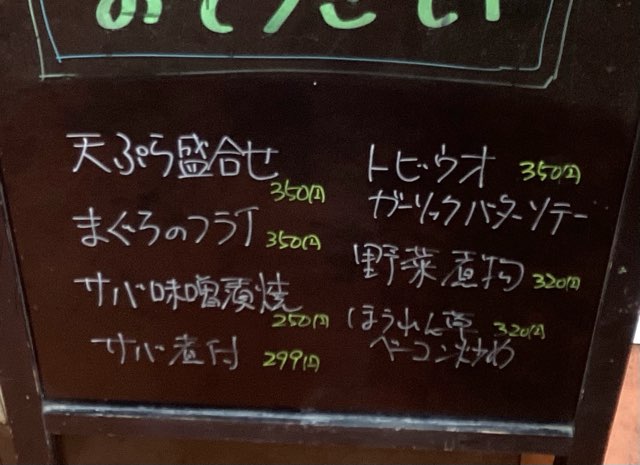 おそうざい
天ぷら盛合せ
350円
まぐろのフライ 350円
サバ味噌漬焼
250円
サバ煮付 299円
トビウオ 350円
ガーリックバターソテー
野菜煮物 320円
ほうれん草 320円
ベーコン炒め